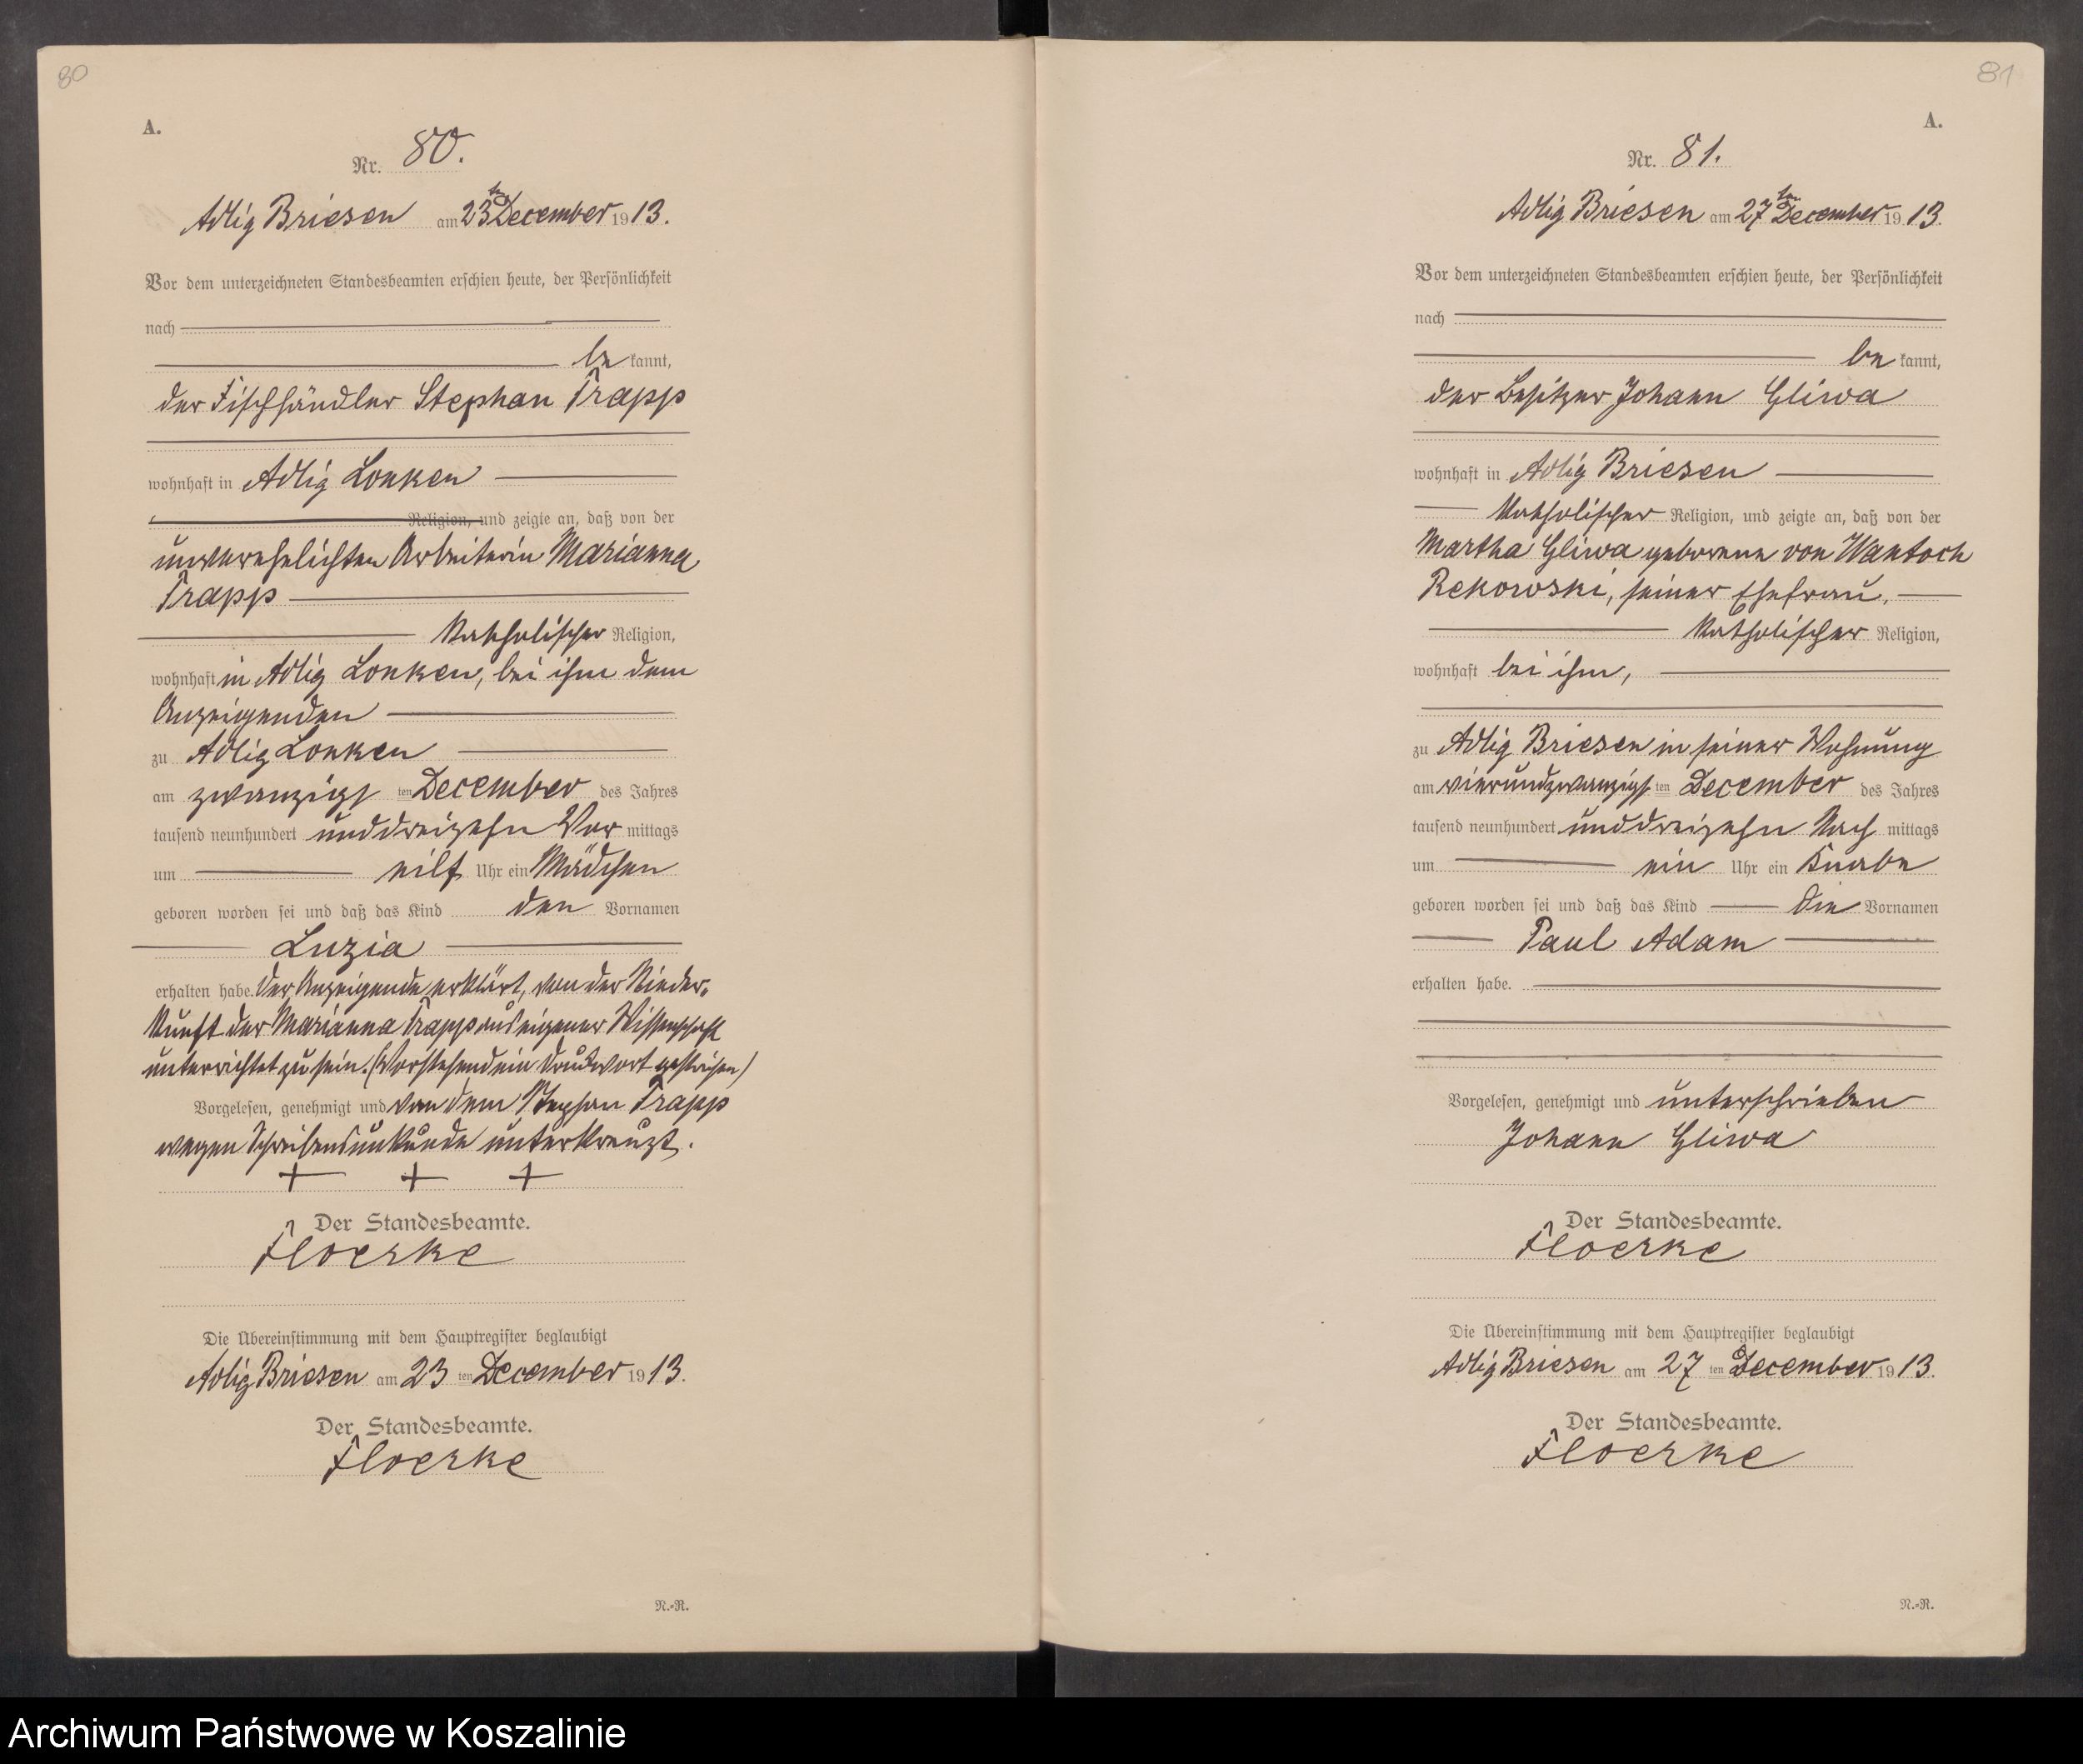 80
A.
Nr. 80.
Adlig Briesen am 23ten December 1913.
Vor dem unterzeichneten Standesbeamten erschien heute, der Persönlichkeit
nach
be kannt,
der Fischhändler Stephan Trapp
wohnhaft in Adlig Lonken
Religion, und zeigte an, daß von der
unverehelichten Arbeiterin Marianna
Trapp
katholischer Religion,
wohnhaft in Adlig Lonken, bei ihm dem
Anzeigenden
zu Adlig Lonken
am zwanzigs ten December des Jahres
tausend neunhundert und dreizehn Vor mittags
um eilf Uhr ein Mädchen
geboren worden sei und daß das Kind den Vornamen
Luzia
erhalten habe. Der Anzeigende erklärt, von der Nieder-
kunft der Marianna Trapp aus eigener Wissenschaft
unterrichtet zu sein. (Vorstehend ein Druckwort gestrichen)
Vorgelesen, genehmigt und von dem Stephan Trapp
wegen Schreibensunkunde unterkreuzt.
+ + +
Der Standesbeamte.
Floerke
Die Übereinstimmung mit dem Hauptregister beglaubigt
Adlig Briesen am 23 ten December 1913.
Der Standesbeamte.
Floerke
N.-R.
81
A.
Nr. 81.
Adlig Briesen am 27ten December 1913.
Vor dem unterzeichneten Standesbeamten erschien heute, der Persönlichkeit
nach
be kannt,
der Besitzer Johann Gliwa
wohnhaft in Adlig Briesen
katholischer Religion, und zeigte an, daß von der
Martha Gliwa geborene von Wantoch
Rekowski, seiner Ehefrau,
katholischer Religion,
wohnhaft bei ihm,
zu Adlig Briesen in seiner Wohnung
am vierundzwanzigs ten December des Jahres
tausend neunhundert und dreizehn Nach mittags
um ein Uhr ein Knabe
geboren worden sei und daß das Kind die Vornamen
Paul Adam
erhalten habe.
Vorgelesen, genehmigt und unterschrieben
Johann Gliwa
Der Standesbeamte.
Floerke
Die Übereinstimmung mit dem Hauptregister beglaubigt
Adlig Briesen am 27 ten December 1913.
Der Standesbeamte.
Floerke
N.-R.
Archiwum Państwowe w Koszalinie